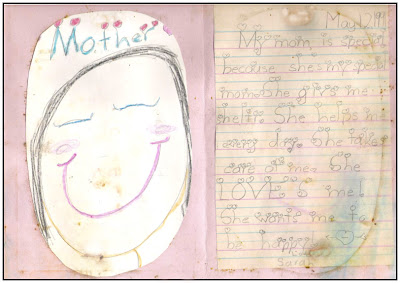 Mother
May 12 191
My mom is special
because she my special
mom. She gives me
She helps me
every day. She takes
care of me. She
LOVE's me!
She wants me to
be happy.
Sarah